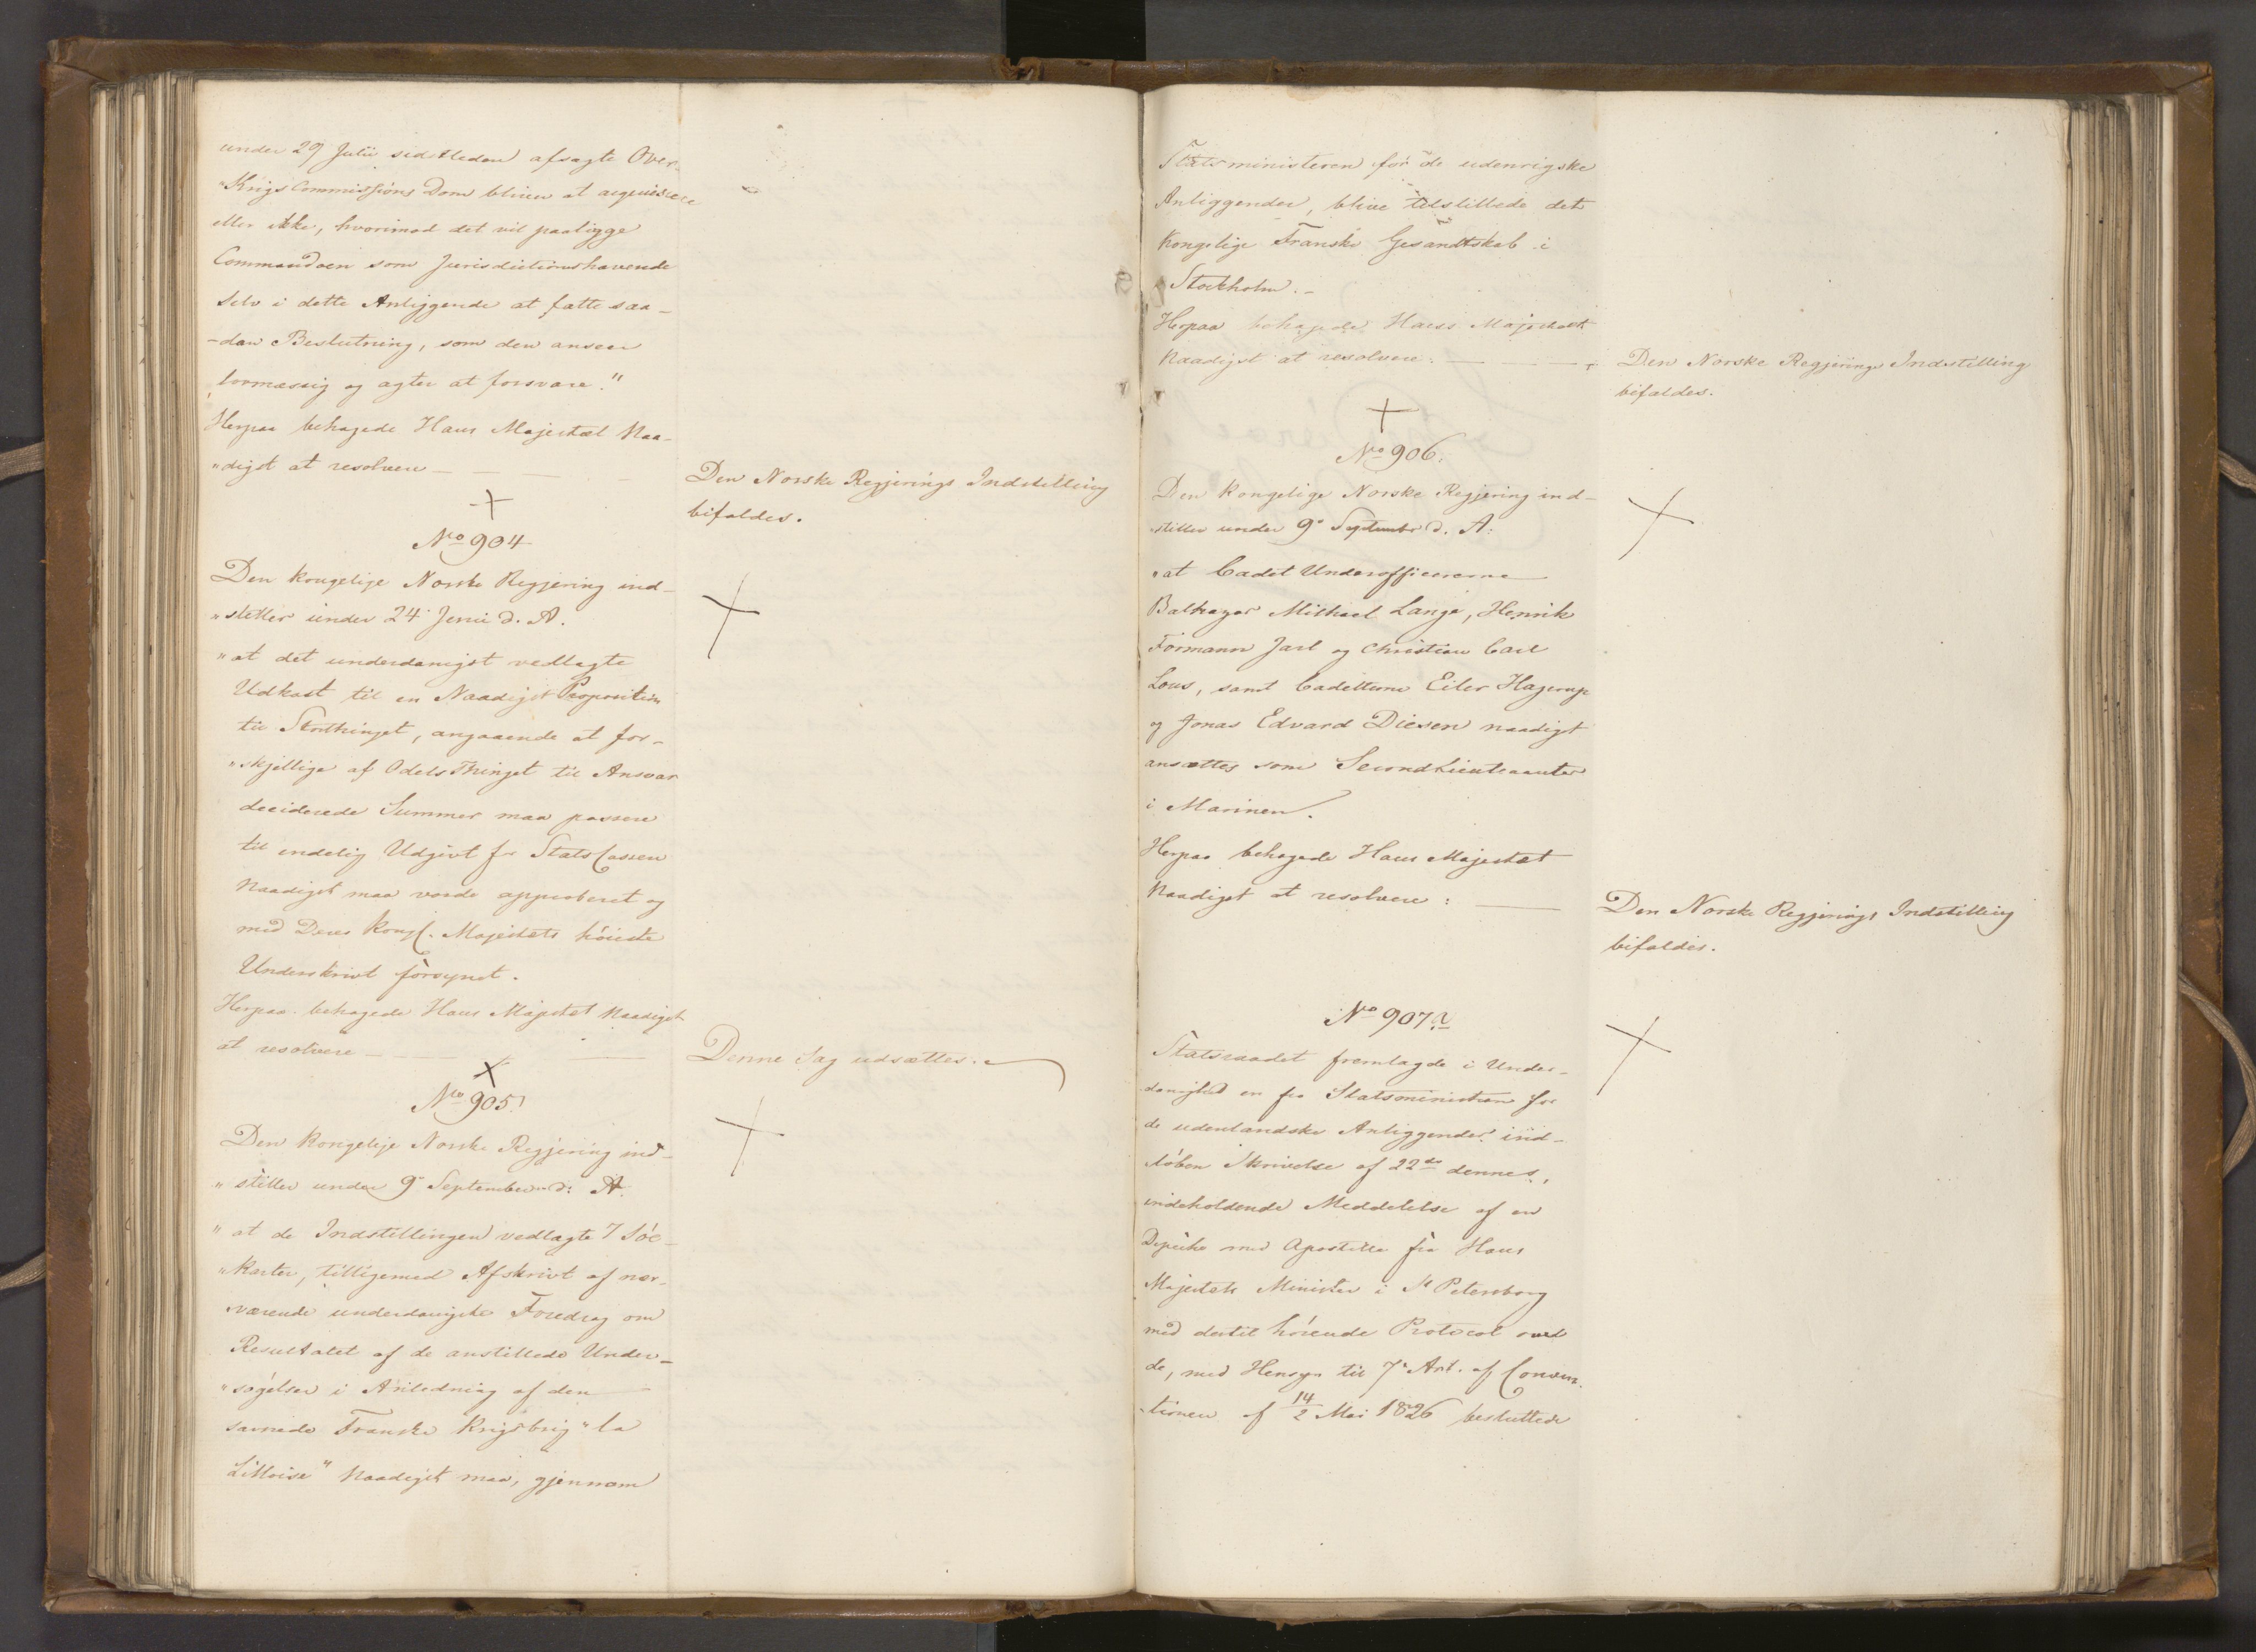 under 29 Julii sidstleden afsagte Over-
"KrigsCommissions Dom bliver at acqviescere
eller ikke, hvorimod det vil paaligge
Commandoen som Jurisdictionshavende
selv i dette Anliggende at fatte saa-
-dan Beslutning, som den anseer
lovmæssig og agter at forsvare."
Herpaa behagede Hans Majestæt Naa-
"digst at resolvere —
Den Norske Regjerings Indstilling
bifaldes.
No 904
Den kongelige Norske Regjering ind-
"stiller under 24 Junii d. A.
"at det underdanigst vedlagte
Udkast til en Naadigst Proposition
til Storthinget, angaaende at for-
"skjellige af OdelsThinget til Ansvar
deciderede Summer maa passere
til endelig Udgivt for StatsCassen
Naadigst maa vorde approberet og
med Deres Kongl. Majestæts höieste
Underskrivt forsynet.
Herpaa behagede Hans Majestæt Naadigst
at resolvere —
Denne Sag udsættes.
No 905.
Den kongelige Norske Regjering ind-
"stiller under 9 September d: A.
"at de Indstillingen vedlagte 7 Söe-
"karter, tilligemed Afskrivt af nær-
værende underdanigste Foredrag om
Resultatet af de anstillede Under-
"sögelser i Anledning af den
savnede Franske Krigsbrig "la
Lilloise" Naadigst maa, gjennem
Statsministeren for de udenrigske
Anliggender, blive tilstillede det
Kongelige Franske Gesandtskab i
Stockholm.-
Herpaa behagede Hans Majestæt
Naadigst at resolvere: —
Den Norske Regjerings Indstilling
bifaldes.
No 906.
Den kongelige Norske Regjering ind-
"stiller under 9 September d. A:
"at Cadet Underofficererne
Balthazar Michael Lange, Henrik
Formann Jarl og Christian Carl
Lous, samt Cadetterne Eiler Hagerup
og Jonas Edvard Diesen naadigst
ansættes som SecondLieutenanter
i Marinen.
Herpaa behagede Hans Majestæt
Naadigst at resolvere: —
Den Norske Regjerings Indstilling
bifaldes.
No 907a
Statsraadet fremlagde i Under-
danighed en fra Statsministeren for
de udenlandske Anliggender ind-
löben Skrivelse af 22de dennes,
indeholdende Meddelelse af en
Depeche med Apostille fra Hans
Majestæts Minister i St Petersborg
med dertil hörende Protocol over
de, med Hensyn til 7 Art. af Conven-
tionen af 14/2 Mai 1826 besluttede